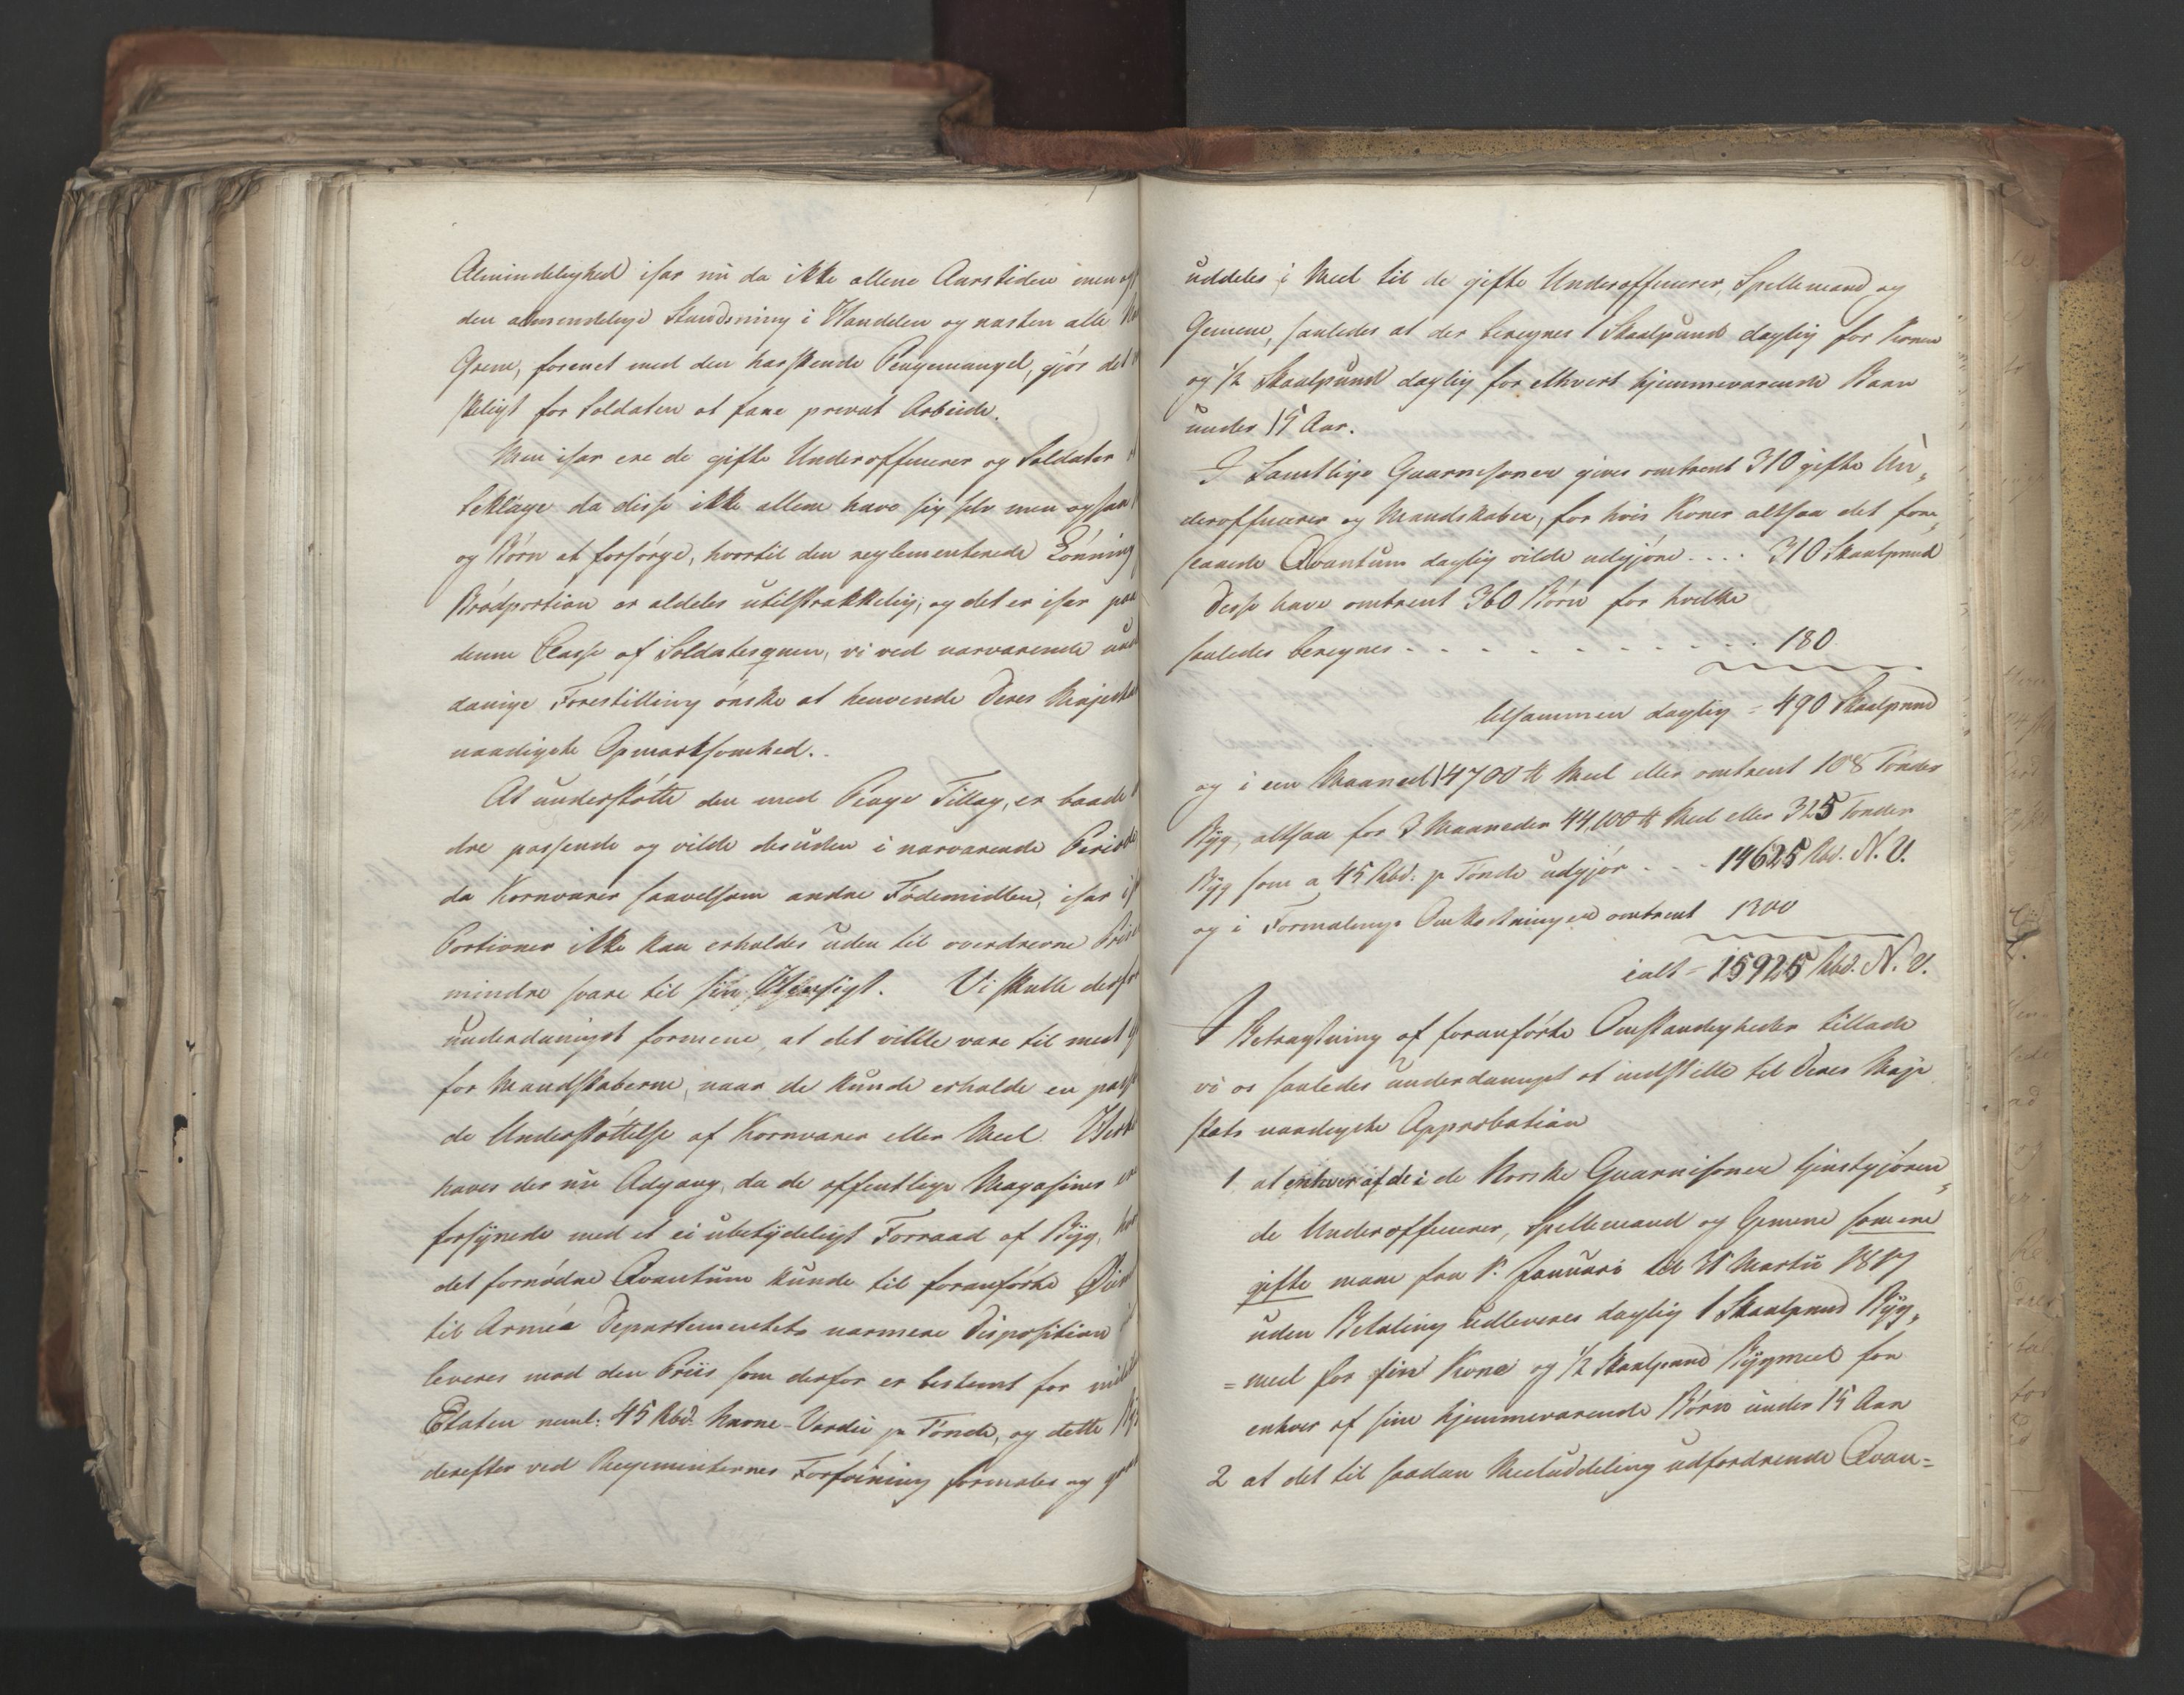 Almindelighed især nu da ikke allene Aarstiden men og
den almindelige Standsning i Handelen og næsten alle
Grene, forenet med den herskende Pengemangel, gjør det
skeligt for Soldaten at faae privat Arbeide.
Men især ere de gifte Underofficerer og Soldater
beklage da disse ikke allene have sig selv men ogsaa
og Børn at forsørge, hvortil den reglementerede Lønning
Brødportion er aldeles utilstrækkelig, og det er især paa
denne Classe af Soldatesquen, vi ved nærværende und
danige Forestilling ønske at henvende Deres Majestæt
naadigste Opmærksomhed.
At understøtte den med Penge Tillæg, er baade
dre passende og vilde desuden i nærværende Periode
da Kornvarer saavelsom andre Fødemidler, især i
Portioner ikke kan erholdes uden til overdrevne Prise
mindre svare til sin Hensigt. Vi skulle derfor
underdanigst formene, at det vilde være til meest
for Mandskaberne, naar de kunde erholde en passe
de Understøttelse af Kornvarer eller Meel. Hertil
haves der nu Adgang, da de offentlige Magasiner ere
forsynede med et ei ubetydeligt Forraad af Byg, hvor
det fornødne Qvantum kunde til foranførte Øie
til Armée Departementets nærmere Disposition
leveres mod den Priis som derfor er bestemt for milit
Etaten neml: 45 Rbd. Navne-Værdie pr Tønde, og dette Byg
derefter ved Regimenternes Forføining formales og
uddeles i Meel til de gifte Underofficerer, Spillemænd og
Gemene, saaledes at der beregnes 1 Skaalpund daglig for Konen
og 1/2 Skaalpund daglig for ethvert hjemmeværende Barn
under 15 Aar.
I Samtlige Guarnisoner gives omtrent 310 gifte Un„
derofficerer og Mandskaber, for hvis Koner altsaa det fore„
staaende Qvantum daglig vilde udgjøre . . . . 310 Skaalpund
Disse have omtrent 360 Børn for hvilke
saaledes beregnes . . . . . . . . . . 180.
tilsammen daglig = 490 Skaalpund
og i een Maaned 14700 ℔ Meel eller omtrent 108 Tønder
Byg, altsaa for 3 Maaneder 44,100 ℔ Meel eller 325 Tønder
Byg som a 45 Rbd. pr Tønde udgjør . . . 14625 Rbd. N. V.
og i Formalings Omkostninger omtrent 1300
ialt = 15925 Rbd. N. V.
I Betragtning af foranførte Omstændigheder tillade
vi os saaledes underdanigst at indstille til Deres Maje
stæts naadigste Approbation
1. at enhver af de i de Norske Guarnisoner tjenstgjøren„
de Underofficerer, Spillemænd og Gemene som ere
gifte maae fra 1. Januari til 31 Martii 1817
uden Betaling udleveres daglig 1 Skaalpund Byg„
=meel for sin Kone og 1/2 Skaalpund Bygmeel for
enhver af sine hjemmeværende Børn under 15 Aar
2 at det til saadan Meeluddeling udfordrende Qvan=